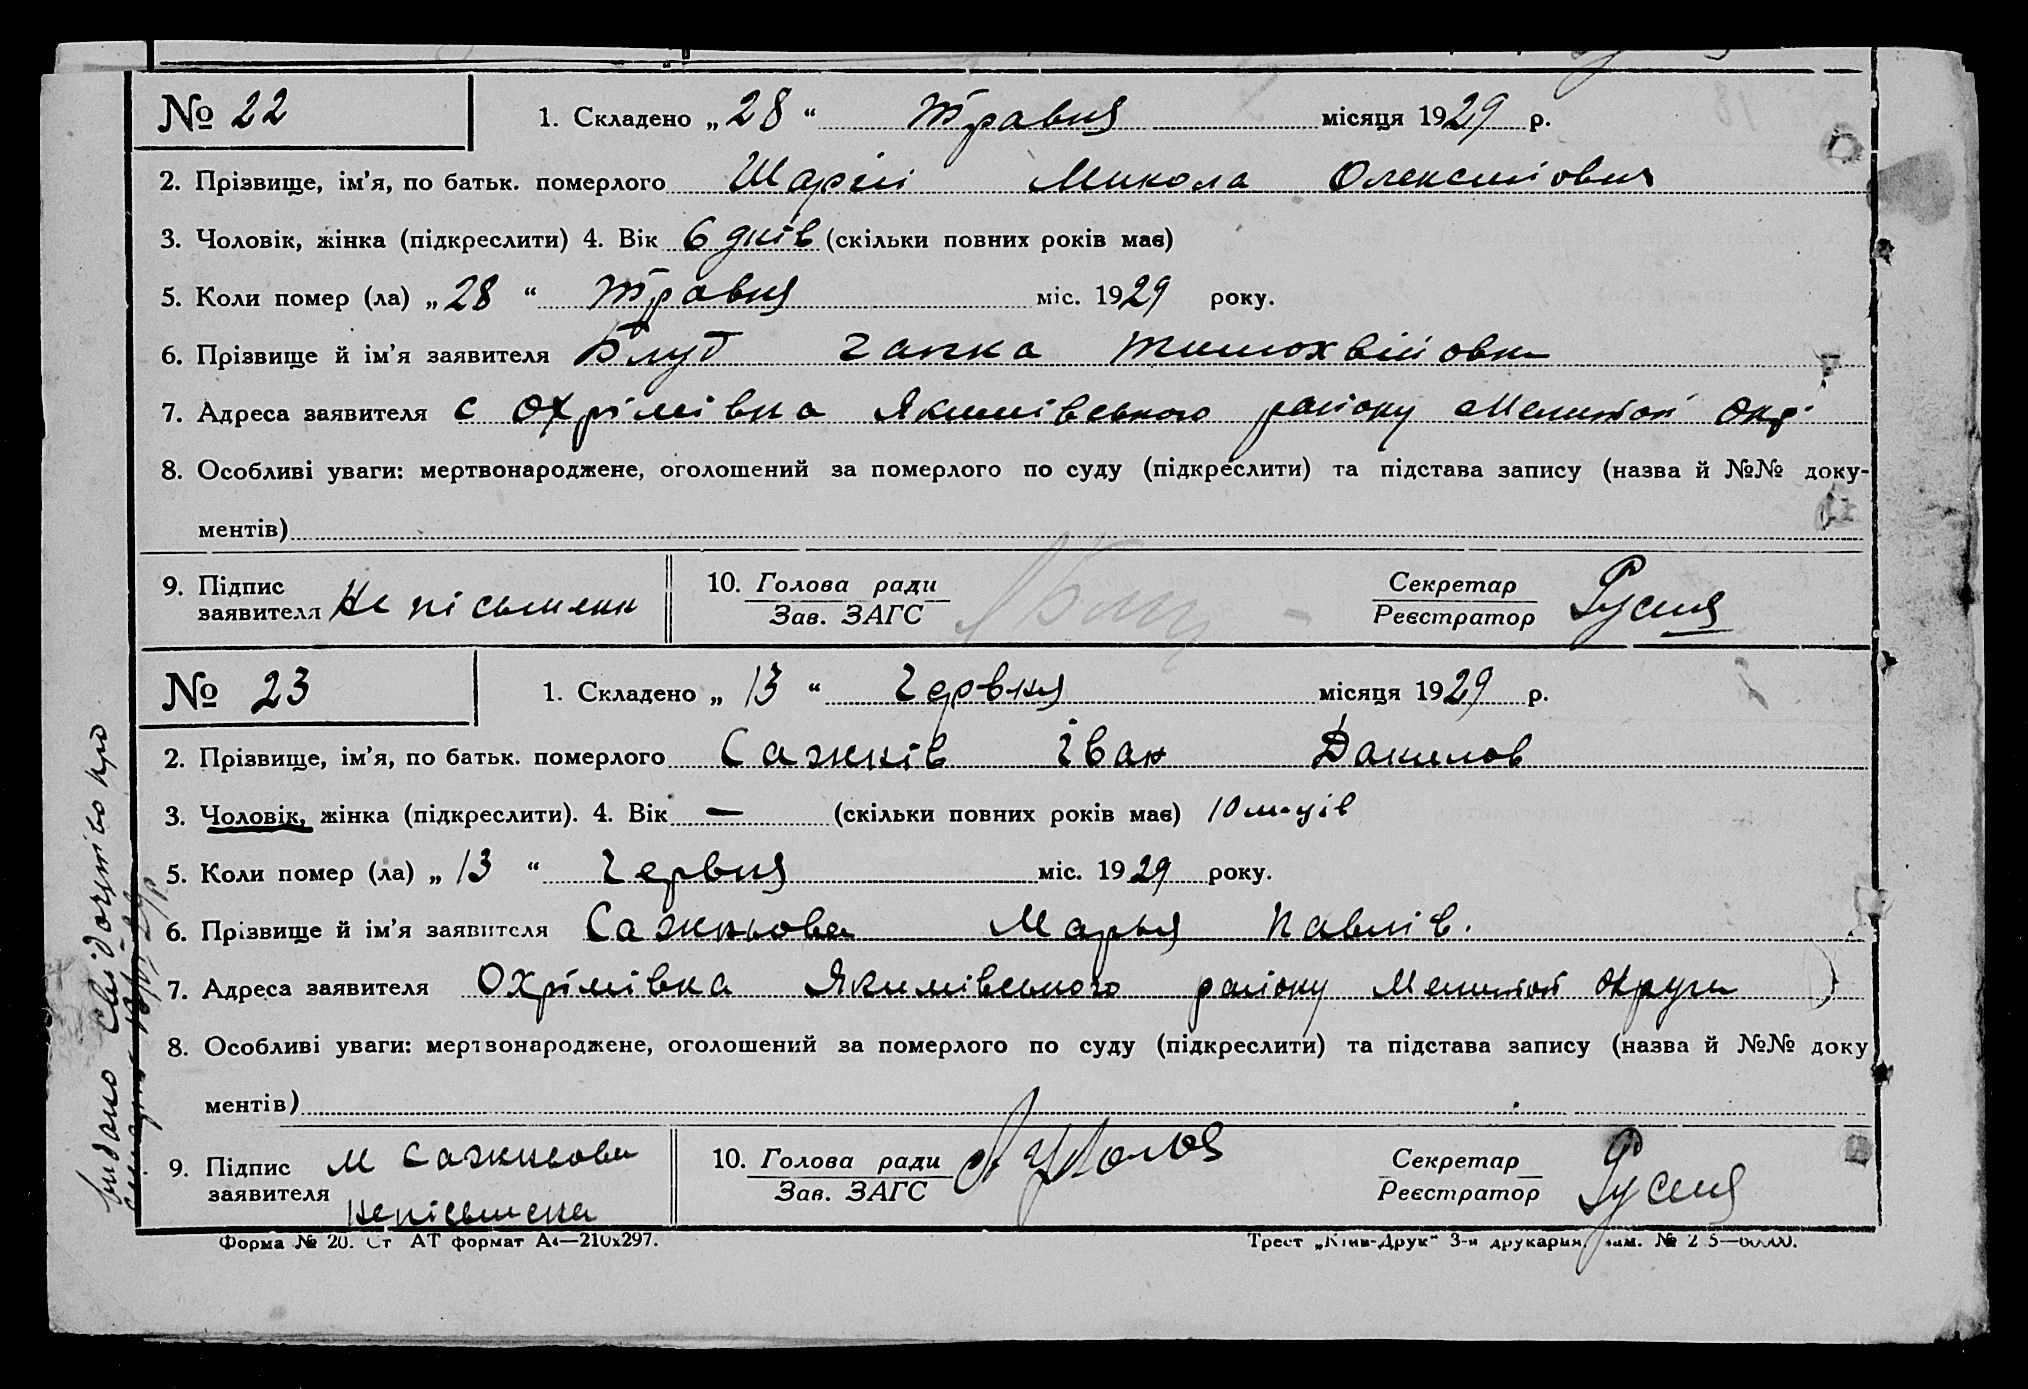 № 22 1. Складено „28“ травня місяця 1929 р.
2. Прізвище, ім'я, по батьк. померлого Шарій Микола Олексийовия
3. Чоловік, жінка (підкреслити) 4. Вік 6 днів (скільки повних років має)
5. Коли помер (ла) „28“ травня міс. 1929 року.
6. Прізвище й ім'я заявителя Блуд Ганка Тимохвійовна
7. Адреса заявителя с Охрімівка Якимівського району Мелитоп Окр.
8. Особливі уваги: мертвонароджене, оголошений за померлого по суду (підкреслити) та підстава запису (назва й №№ доку-
ментів)
9. Підпис заявителя Не пісьменн 10. Голова ради Зав. ЗАГС Секретар Реєстратор
№ 23 1. Складено „13“ Червня місяця 1929 р.
2. Прізвище, ім'я, по батьк. померлого Сажнів Іван Данилов
3. Чоловік, жінка (підкреслити). 4. Вік — (скільки повних років має) 10 м-ців
5. Коли помер (ла) „13“ Червня міс. 1929 року.
6. Прізвище й ім'я заявителя Сажньова Марья Павлів.
7. Адреса заявителя Охрімівка Якимівського району Мелитоп округи
8. Особливі уваги: мертвонароджене, оголошений за померлого по суду (підкреслити) та підстава запису (назва й №№ доку
ментів)
9. Підпис заявителя М Сажньова непісьмена 10. Голова ради Зав. ЗАГС Секретар Реєстратор
видано свідоцтво про
Форма № 20. Ст АТ формат А4—210х297. Трест „Київ-Друк“ 3-я друкарня.